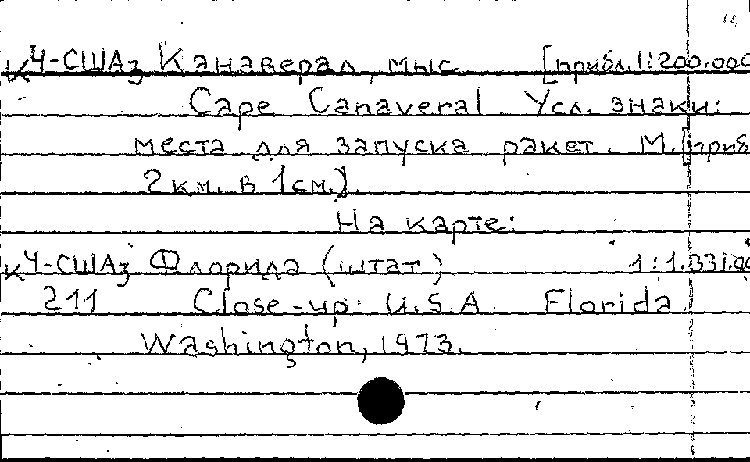 К4-США3 Канаверал, мыс. [прибл. 1:200.000
Cape Canaveral Усл. знаки:
места для запуска ракет. М.[приб
2 км. в 1 см.].
На карте:
К4-США3 Флорида (штат) 1:1.331.00
211 Close-up: U.S.A. Florida.
Washington, 1973.